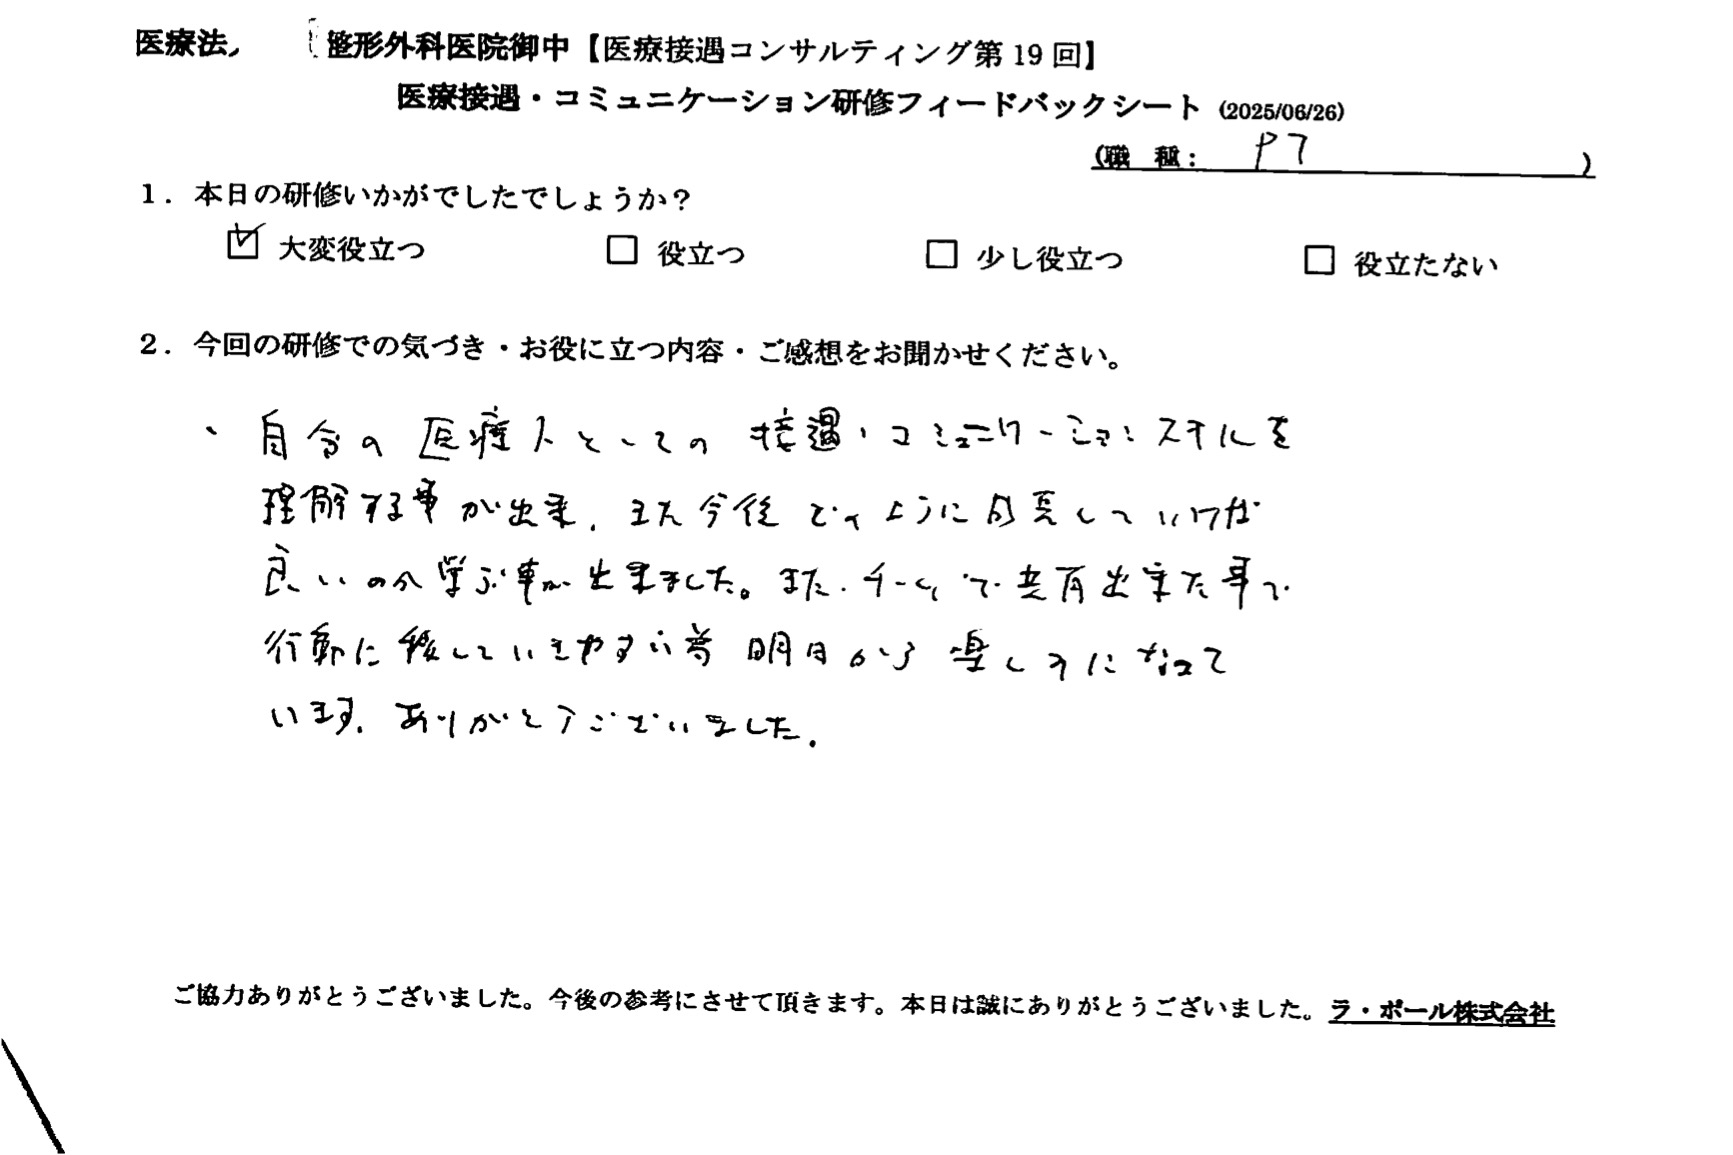 医療法 整形外科医院御中【医療接遇コンサルティング第 19 回】
医療接遇・コミュニケーション研修フィードバックシート (2025/06/26)
(職 種: PT )
1. 本日の研修いかがでしたでしょうか?
☑ 大変役立つ □ 役立つ □ 少し役立つ □ 役立たない
2. 今回の研修での気づき・お役に立つ内容・ご感想をお聞かせください。
・自分の医療人としての接遇・コミュニケーションスキルを
理解する事が出来、また今後どのように成長していけば
良いのか学ぶ事が出来ました。また、チームで共有出来た事で
行動に移していきやすい等 明日から楽しみになって
います。ありがとうございました。
ご協力ありがとうございました。今後の参考にさせて頂きます。本日は誠にありがとうございました。ラ・ポール株式会社